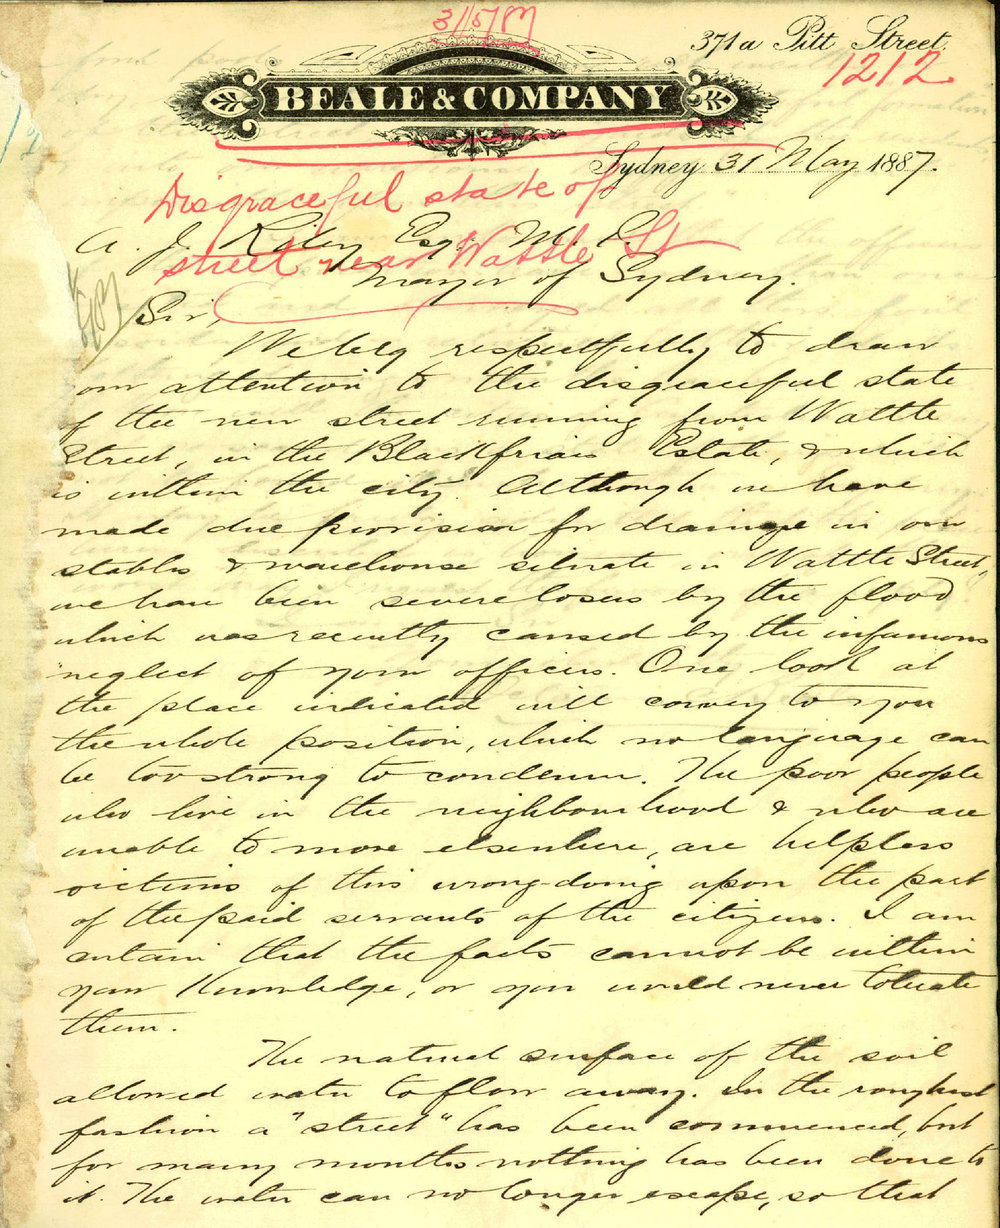 31/5/87
371a Pitt Street.
1212
BEALE & COMPANY
Sydney 31 May 1887.
Disgraceful state of
street near Wattle St
A. J. Riley Esq. M. P.
Mayor of Sydney.
Sir,
We beg respectfully to draw
your attention to the disgraceful state
of the new street running from Wattle
Street, in the Blackfriars Estate, & which
is within the city. Although we have
made due provision for drainage in our
stables & warehouse situate in Wattle Street,
we have been severe losers by the flood
which was recently caused by the infamous
neglect of your officers. One look at
the place indicated will convey to you
the whole position, which no language can
be too strong to condemn. The poor people
who live in the neighbourhood & who are
unable to move elsewhere, are helpless
victims of this wrong-doing upon the part
of the paid servants of the citizens. I am
certain that the facts cannot be within
your knowledge, or you would never tolerate
them.
The natural surface of the soil
allowed water to flow away. In the roughest
fashion a "street" has been commenced, but
for many months nothing has been done to
it. The water can no longer escape, so that